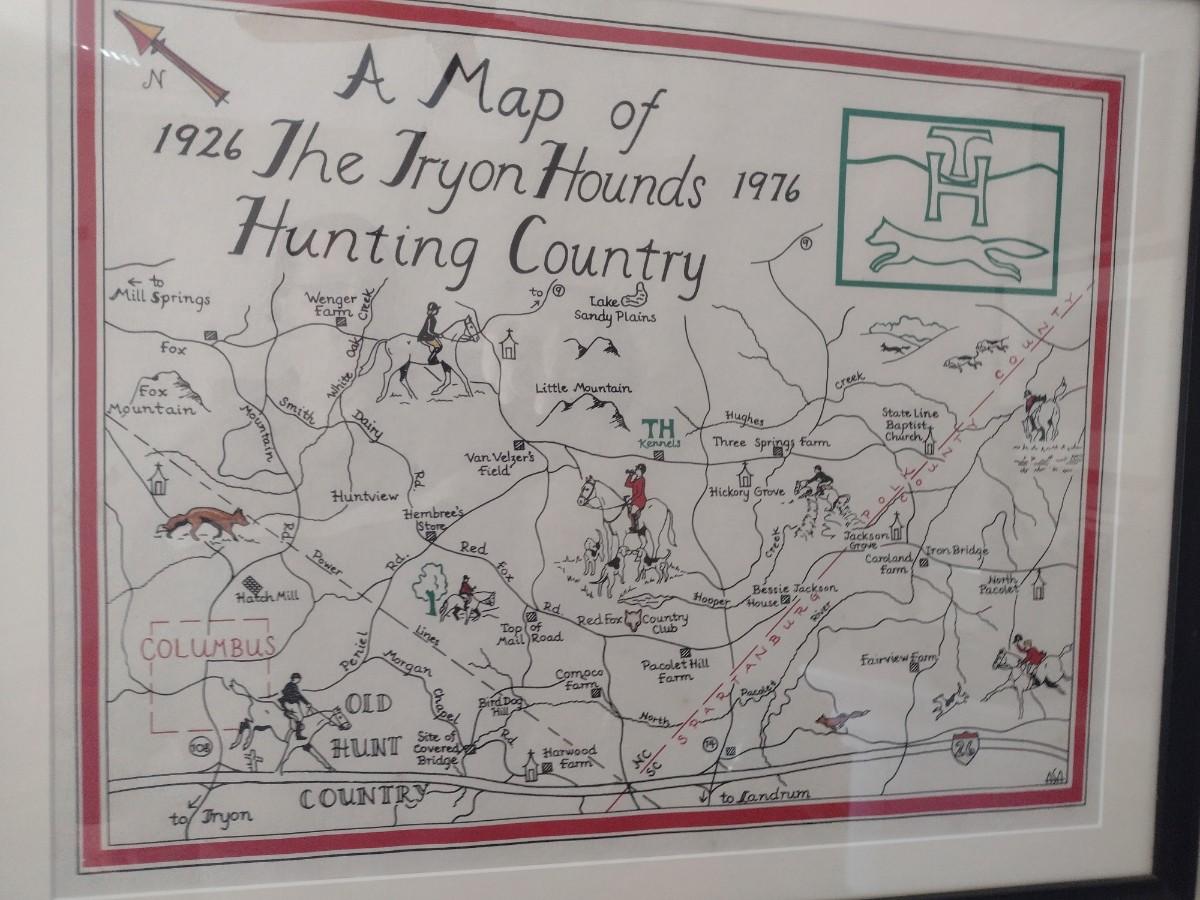 N
A Map of
1926 The Tryon Hounds 1976
Hunting Country
TH
← to
Mill Springs
Wenger
Farm
White Oak Creek
to 9
Lake
Sandy Plains
9
Fox
Mountain
Rd.
Fox
Mountain
Smith
Dairy
Rd.
Little Mountain
Van Velzer's
Field
TH
Kennels
Hughes
Creek
Three Springs Farm
State Line
Baptist
Church
POLK COUNTY
SPARTANBURG COUNTY
Huntview
Hickory Grove
Hembree's
Store
Jackson
Grove
Caroland
Farm
Iron Bridge
North
Pacolet
Hatch Mill
Power
Lines
Peniel
Rd.
Red
Fox
Rd.
Top of
Mail Road
Red Fox Country
Club
Hooper
Creek
Bessie Jackson
House
COLUMBUS
Morgan
Chapel
Rd.
Comoco
Farm
Pacolet Hill
Farm
Fairview Farm
OLD
HUNT
COUNTRY
Bird Dog
Hill
Site of
Covered
Bridge
Harwood
Farm
North
Pacolet
River
NC
SC
108
14
26
to Tryon
to Landrum